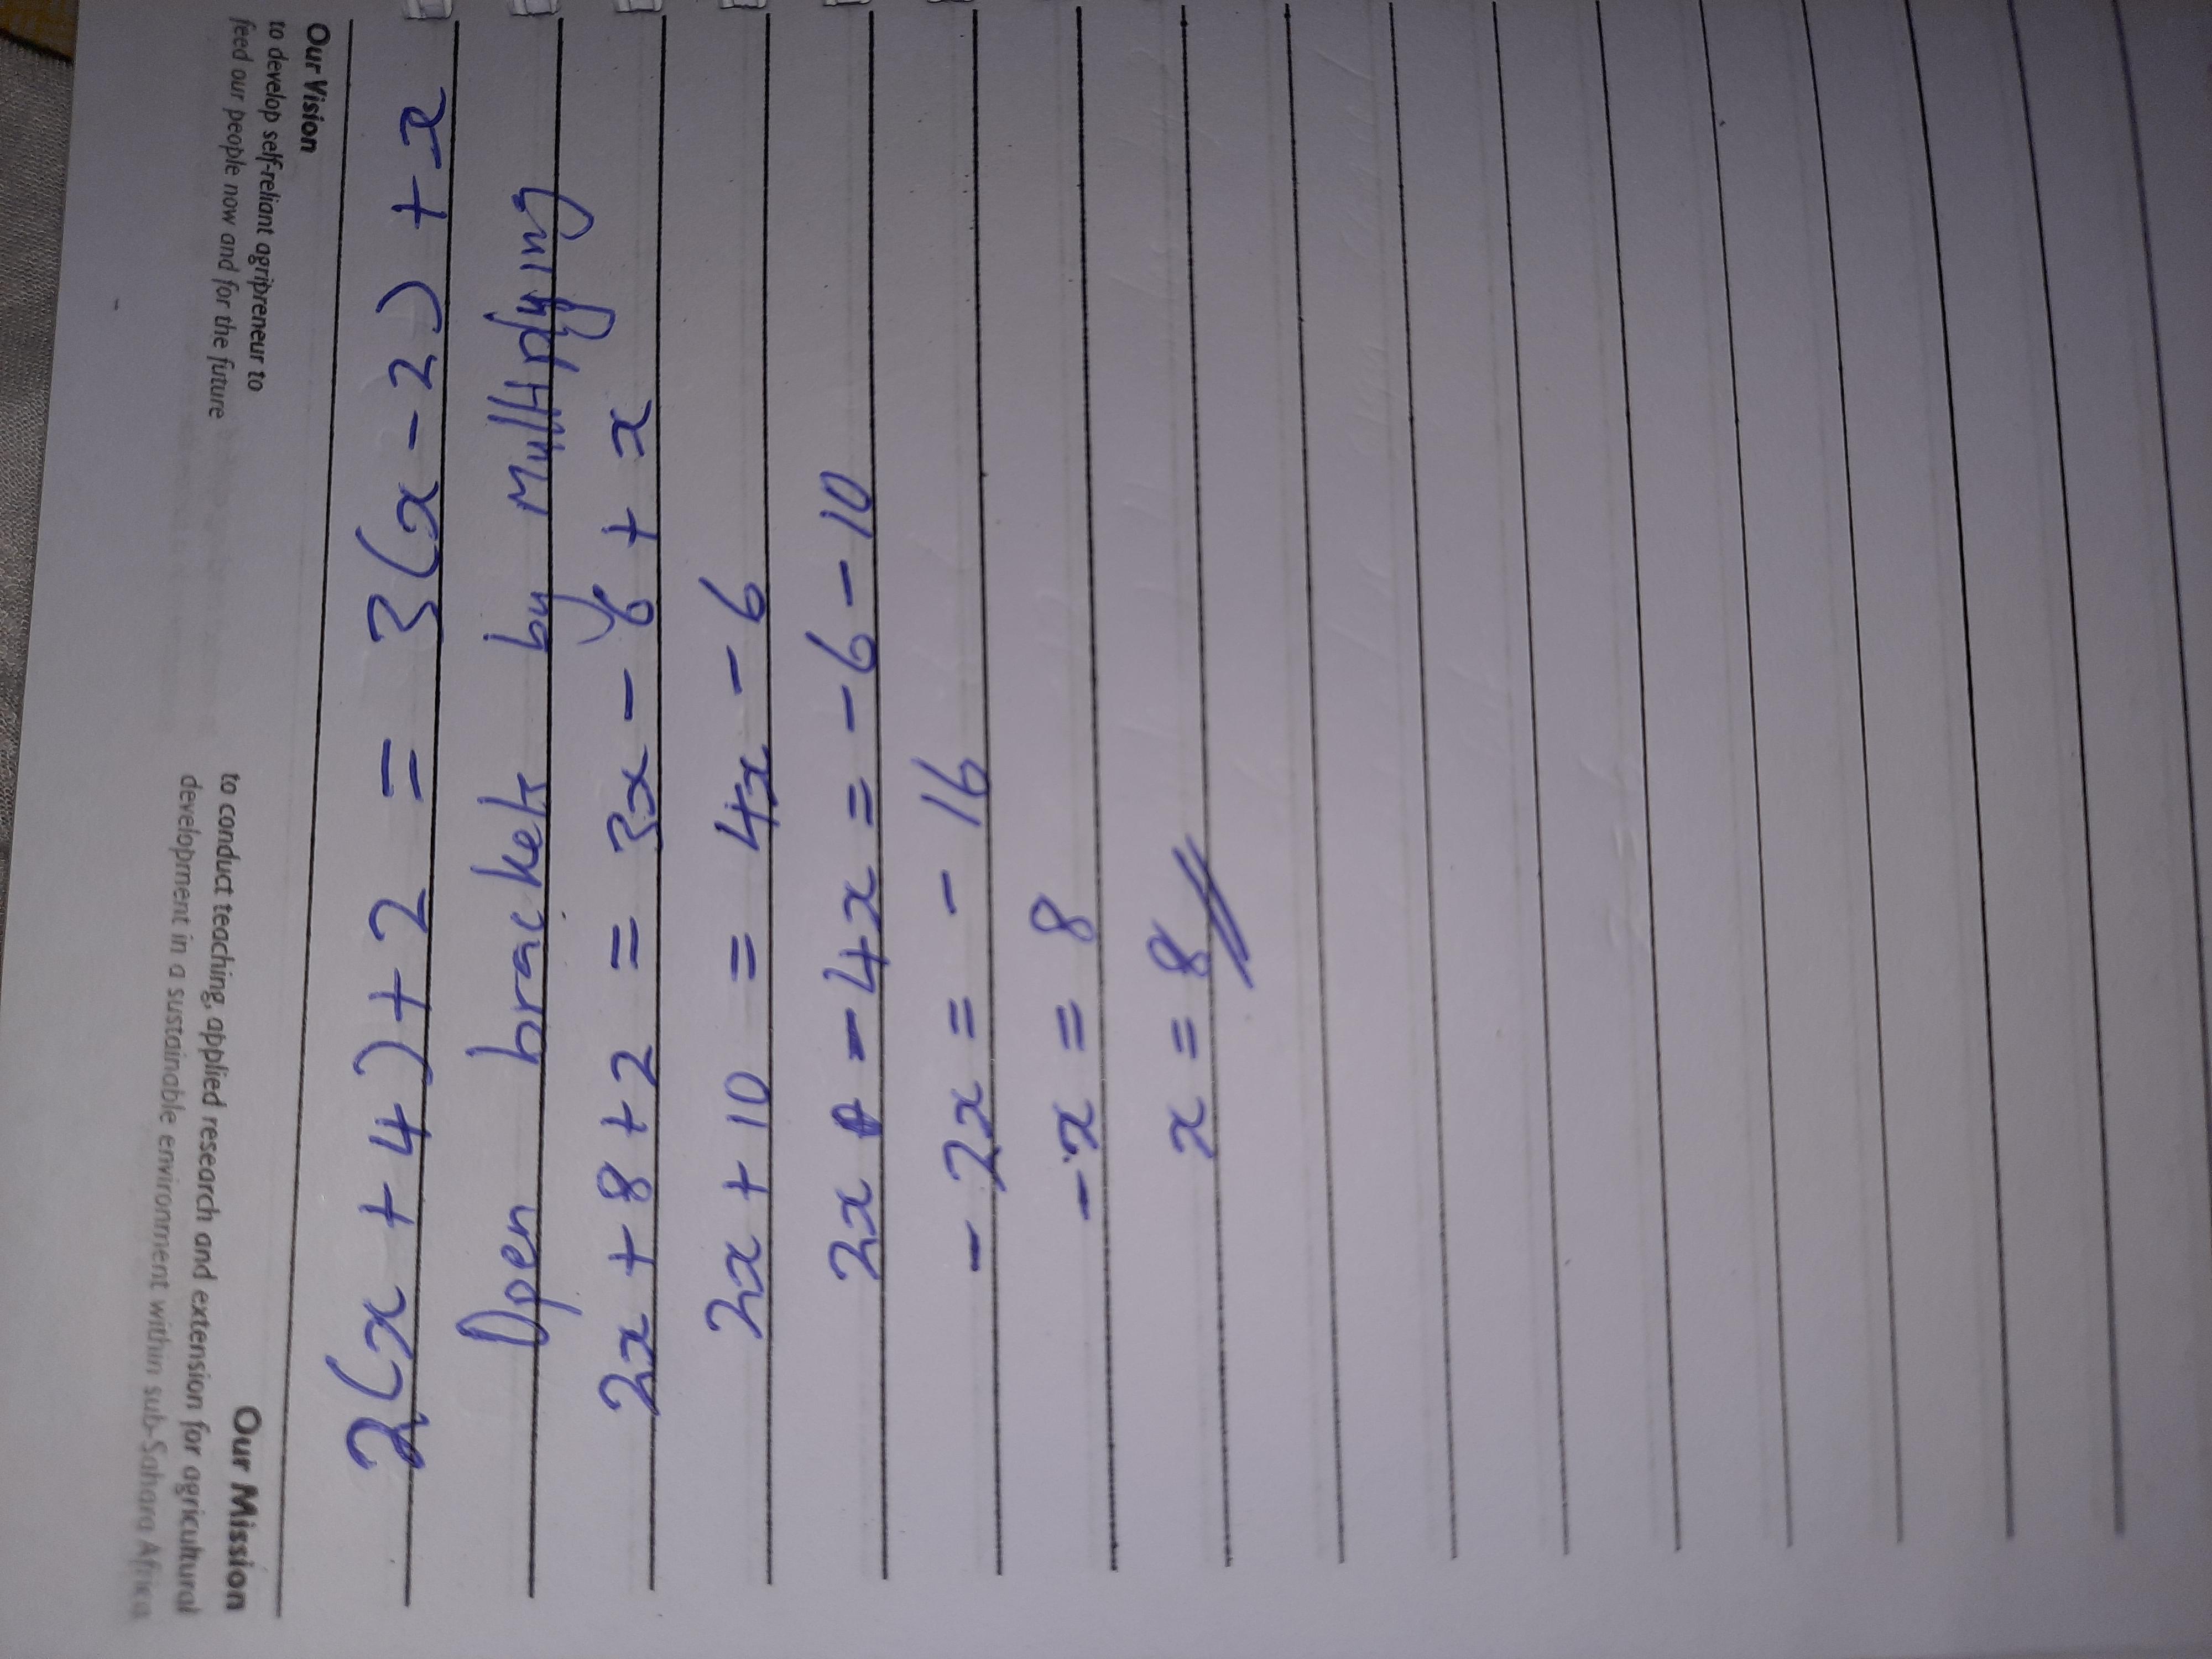 2(x + 4) + 2 = 3(x - 2) + x
Open bracket by multiplying
2x + 8 + 2 = 3x - 6 + x
2x + 10 = 4x - 6
2x - 4x = - 6 - 10
- 2x = - 16
- x = 8
x = 8
Our Vision
to develop self-reliant agripreneur to
feed our people now and for the future
Our Mission
to conduct teaching, applied research and extension for agricultural
development in a sustainable environment within sub-Sahara Africa